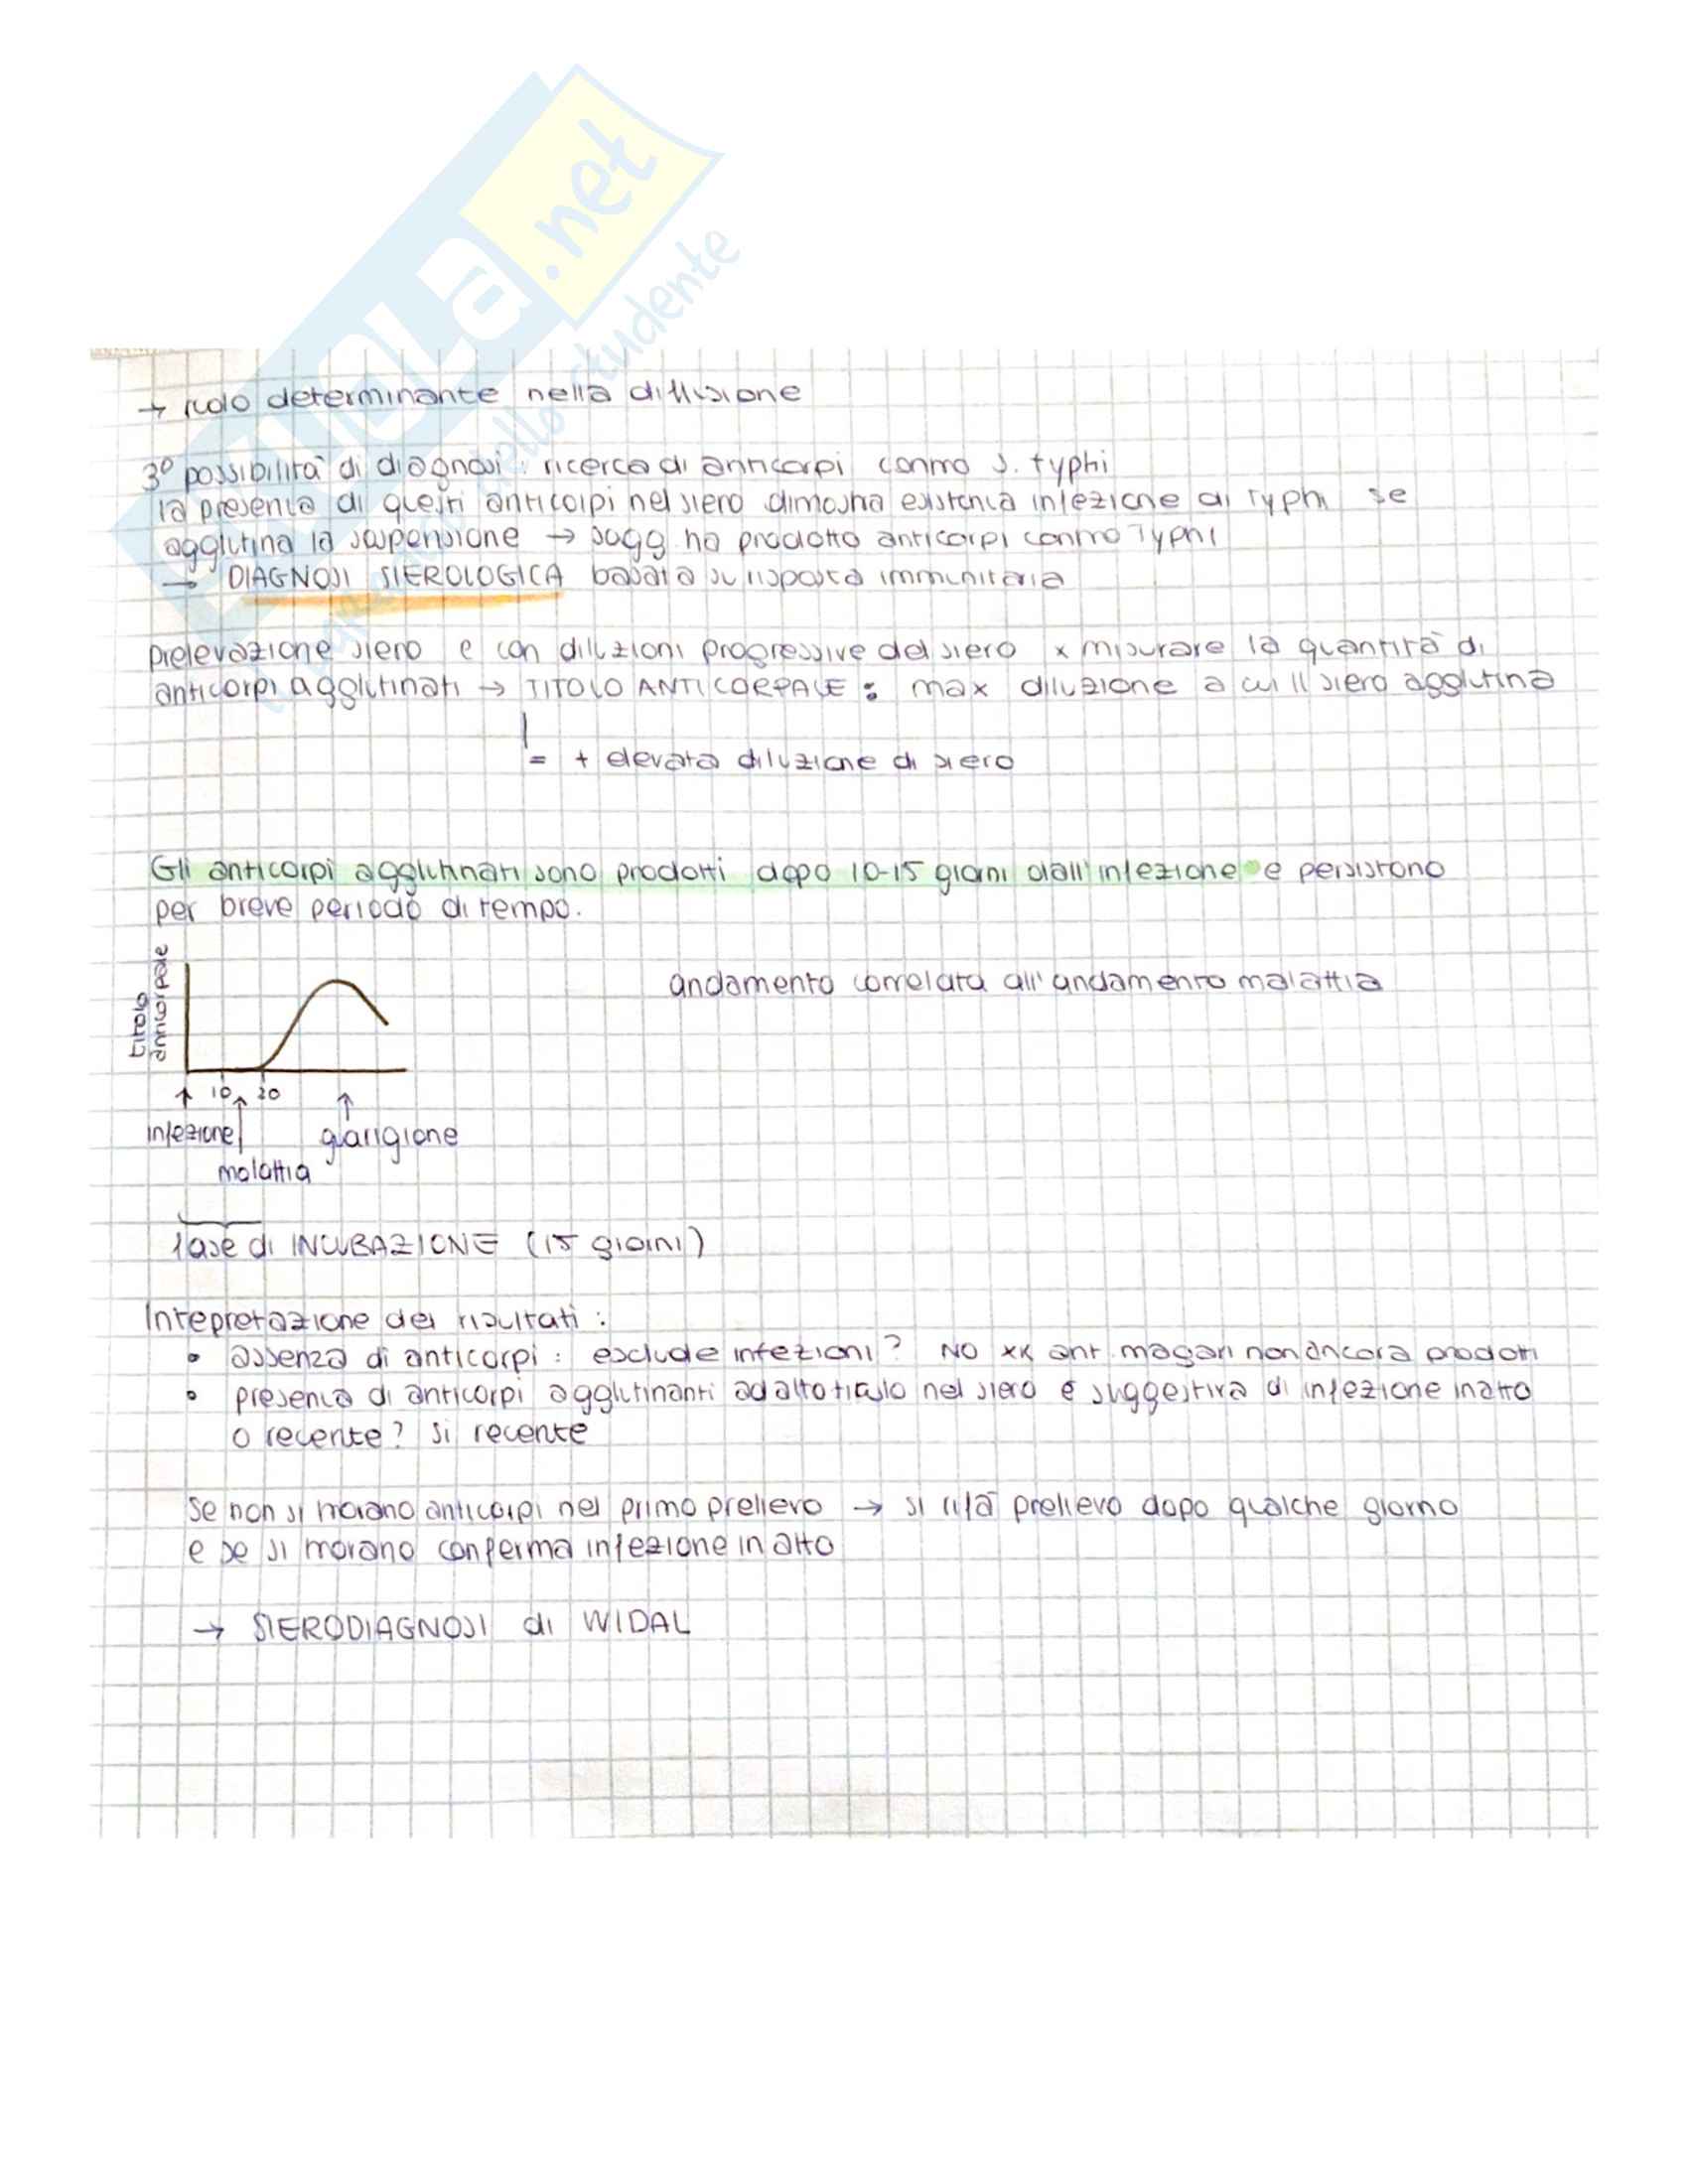 → ruolo determinante nella diffusione
3° possibilità di diagnosi: ricerca di anticorpi contro S. typhi
la presenza di questi anticorpi nel siero dimostra esistenza infezione di typhi se
agglutina la sospensione → sogg. ha prodotto anticorpi contro Typhi
→ DIAGNOSI SIEROLOGICA basata su risposta immunitaria
prelevazione siero e con diluzioni progressive del siero x misurare la quantità di
anticorpi agglutinati → TITOLO ANTICORPALE: max diluzione a cui il siero agglutina
= + elevata diluzione di siero
Gli anticorpi agglutinati sono prodotti dopo 10-15 giorni dall'infezione e persistono
per breve periodo di tempo.
titolo
anticorpale
andamento correlata all'andamento malattia
↑ 10 ↑ 20 ↑
infezione guarigione
malattia
fase di INCUBAZIONE (15 giorni)
Intepretazione dei risultati:
• assenza di anticorpi: esclude infezioni? NO xk ant. magari non ancora prodotti
• presenza di anticorpi agglutinanti ad alto titolo nel siero è suggestiva di infezione in atto
o recente? Si recente
Se non si trovano anticorpi nel primo prelievo → si rifà prelievo dopo qualche giorno
e se si trovano conferma infezione in atto
→ SIERODIAGNOSI di WIDAL
.net